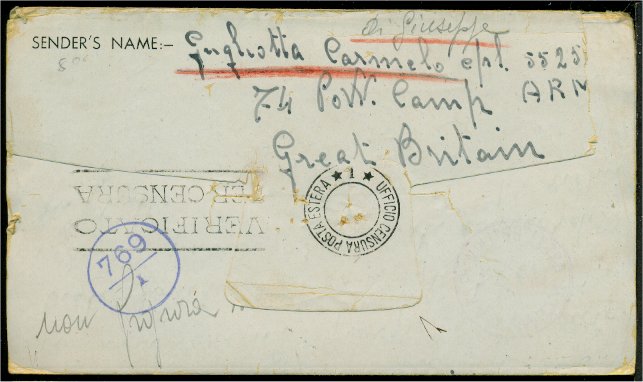 di Giuseppe
SENDER'S NAME:— Gugliotta Carmelo cpl. 5525
ARM
74 PoW. Camp
Great Britain
VERIFICATO
PER CENSURA
UFFICIO CENSURA POSTA ESTERA ★ 1 ★
769
1
non figura